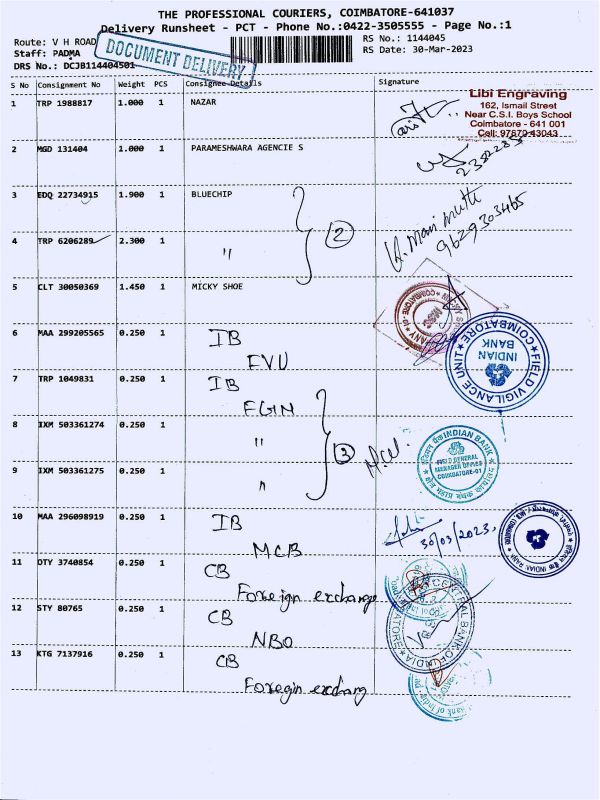 THE PROFESSIONAL COURIERS, COIMBATORE-641037
Delivery Runsheet - PCT - Phone No.:0422-3505555 - Page No.:1
Route: V H ROAD
RS No.: 1144045
Staff: PADMA
RS Date: 30-Mar-2023
DRS No.: DCJB114404501
DOCUMENT DELIVERY
S No Consignment No Weight PCS Consignee Details Signature
1 TRP 1988817 1.000 1 NAZAR
Libi Engraving
162, Ismail Street
Near C.S.I. Boys School
Coimbatore - 641 001
Cell: 97870 43043
2 MGD 131404 1.000 1 PARAMESHWARA AGENCIE S
3 EDQ 22734915 1.900 1 BLUECHIP
2
4 TRP 6206289 2.300 1 "
9629303465
5 CLT 30050369 1.450 1 MICKY SHOE
6 MAA 299205565 0.250 1 IB
FVU
FIELD VIGILANCE UNIT COIMBATORE
INDIAN BANK
7 TRP 1049831 0.250 1 IB
FGM
8 IXM 503361274 0.250 1 "
3
INDIAN BANK
FIELD GENERAL
MANAGER OFFICE
COIMBATORE-01
9 IXM 503361275 0.250 1 "
10 MAA 296098919 0.250 1 IB
MCB
30/03/2023,
11 OTY 3740854 0.250 1 CB
Foreign exchange
12 STY 80765 0.250 1 CB
NBO
CENTRAL BANK OF INDIA COIMBATORE
13 KTG 7137916 0.250 1 CB
Foregin exchang